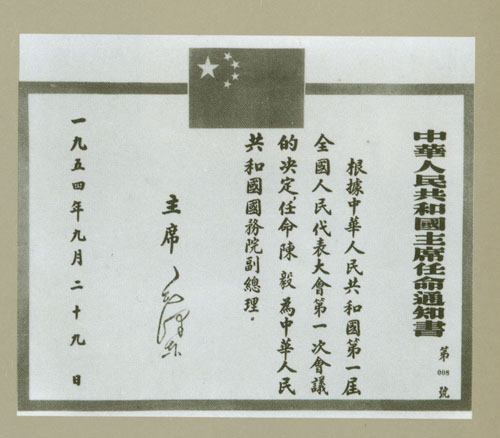 中華人民共和國主席任命通知書
第008號
根據中華人民共和國第一屆
全國人民代表大會第一次會議
的决定,任命陳毅為中華人民
共和國國務院副總理。
主席 毛澤東
一九五四年九月二十九日